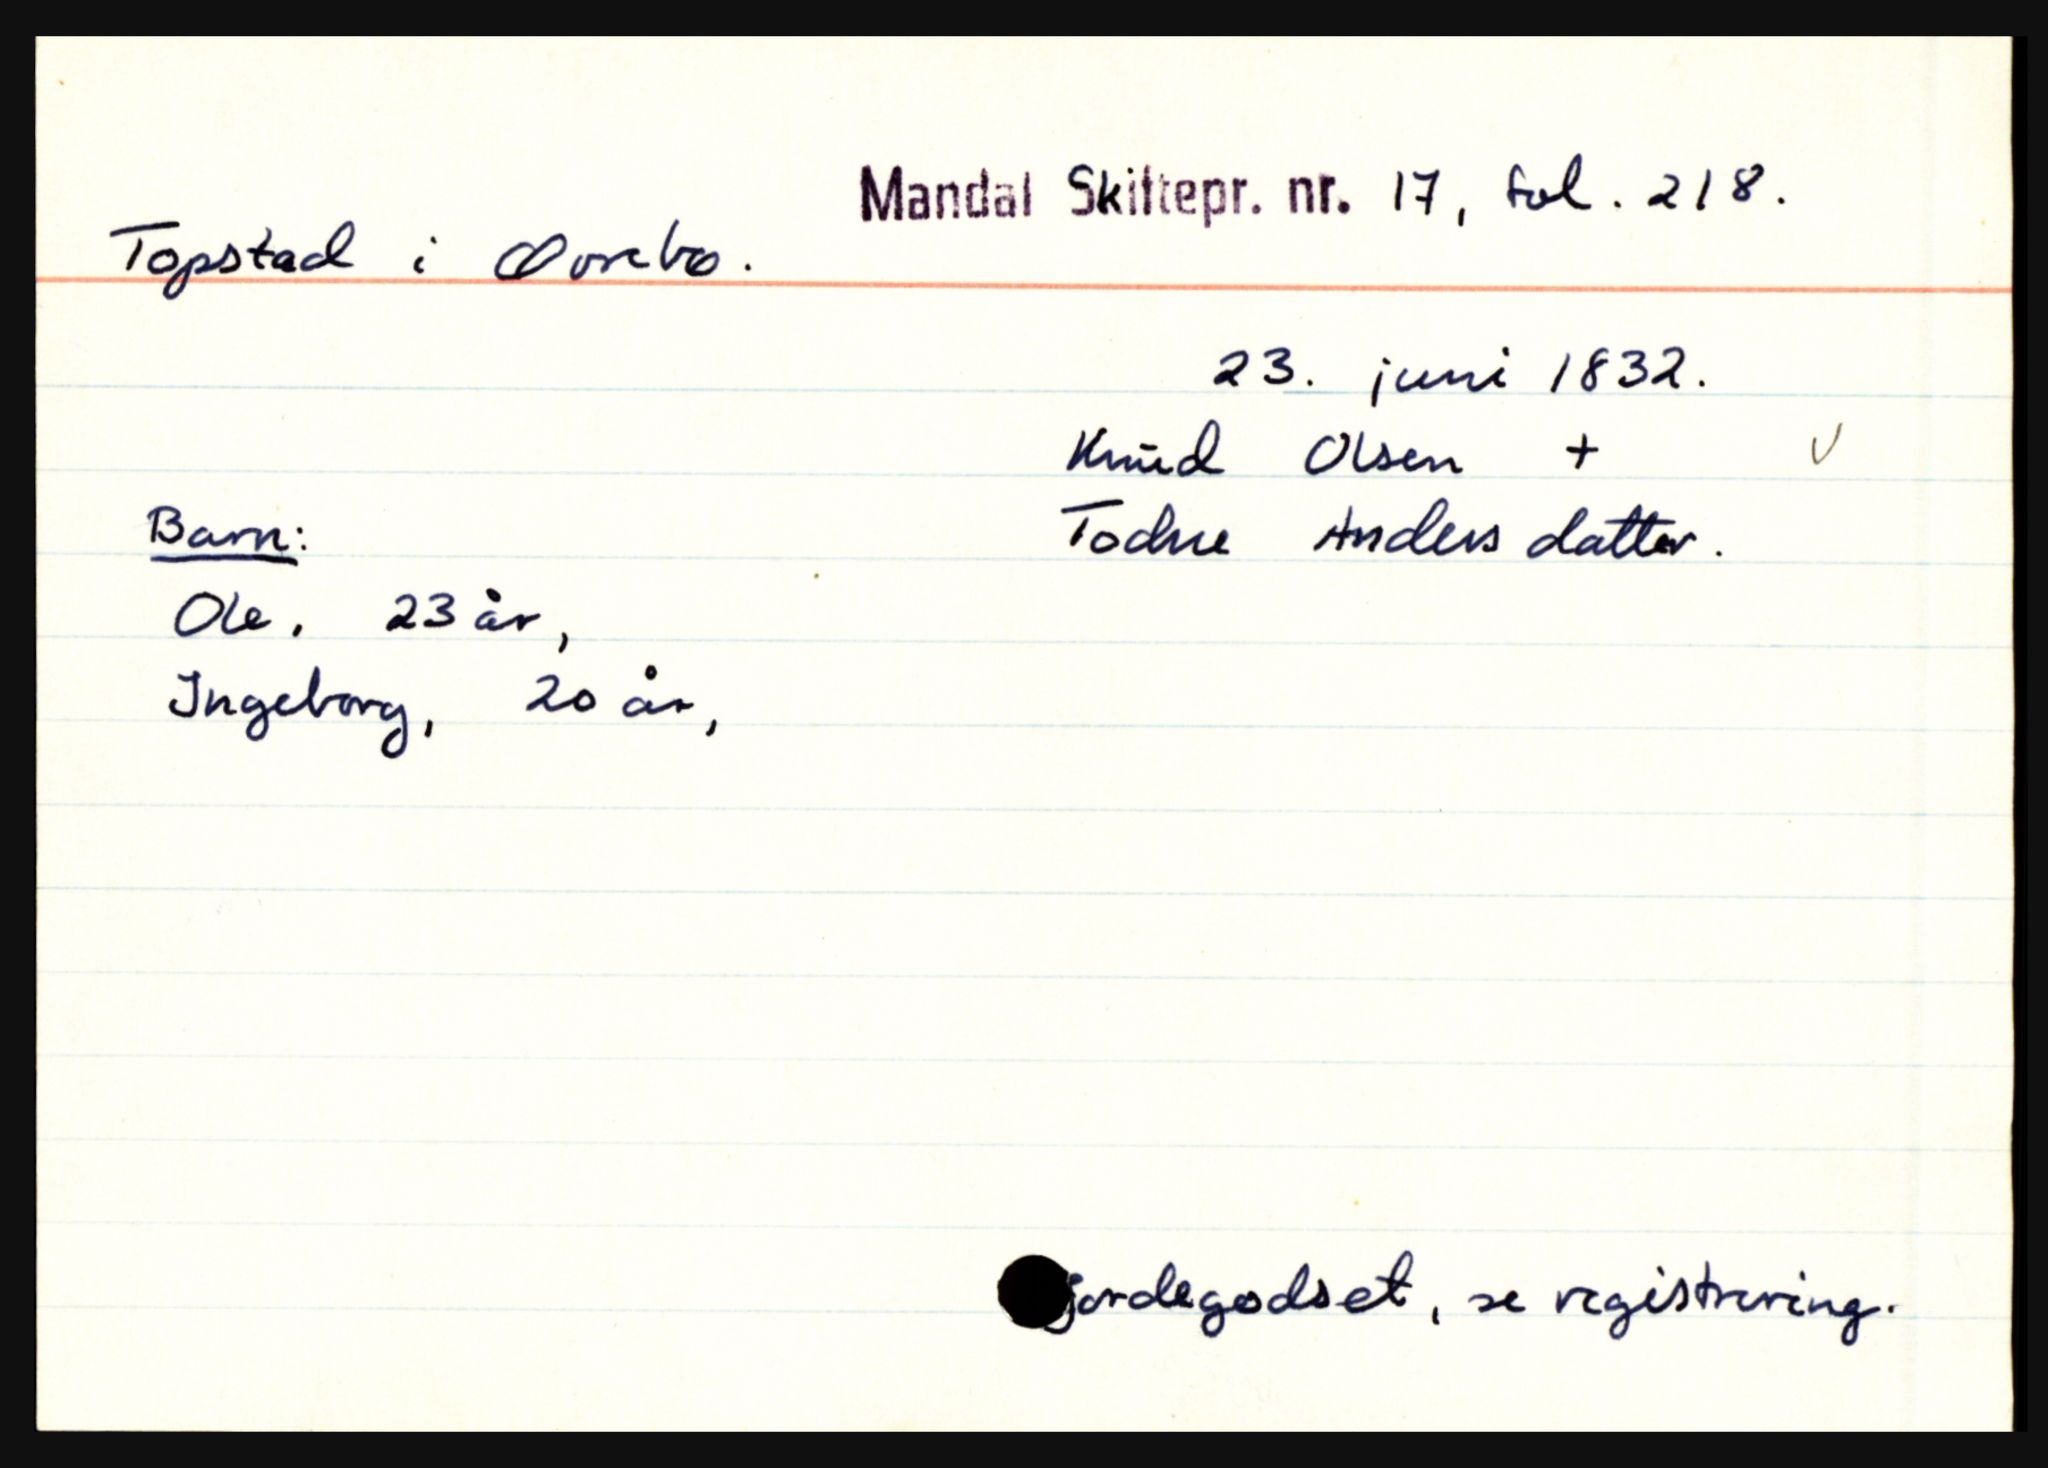 Mandal Skiftepr. nr. 17, fol. 218.
Topstad i Øvrebø.
23. juni 1832.
Knud Olsen +
Todne Andersdatter.
Barn:
Ole, 23 år,
Ingeborg, 20 år,
jordegodset, se registrering.